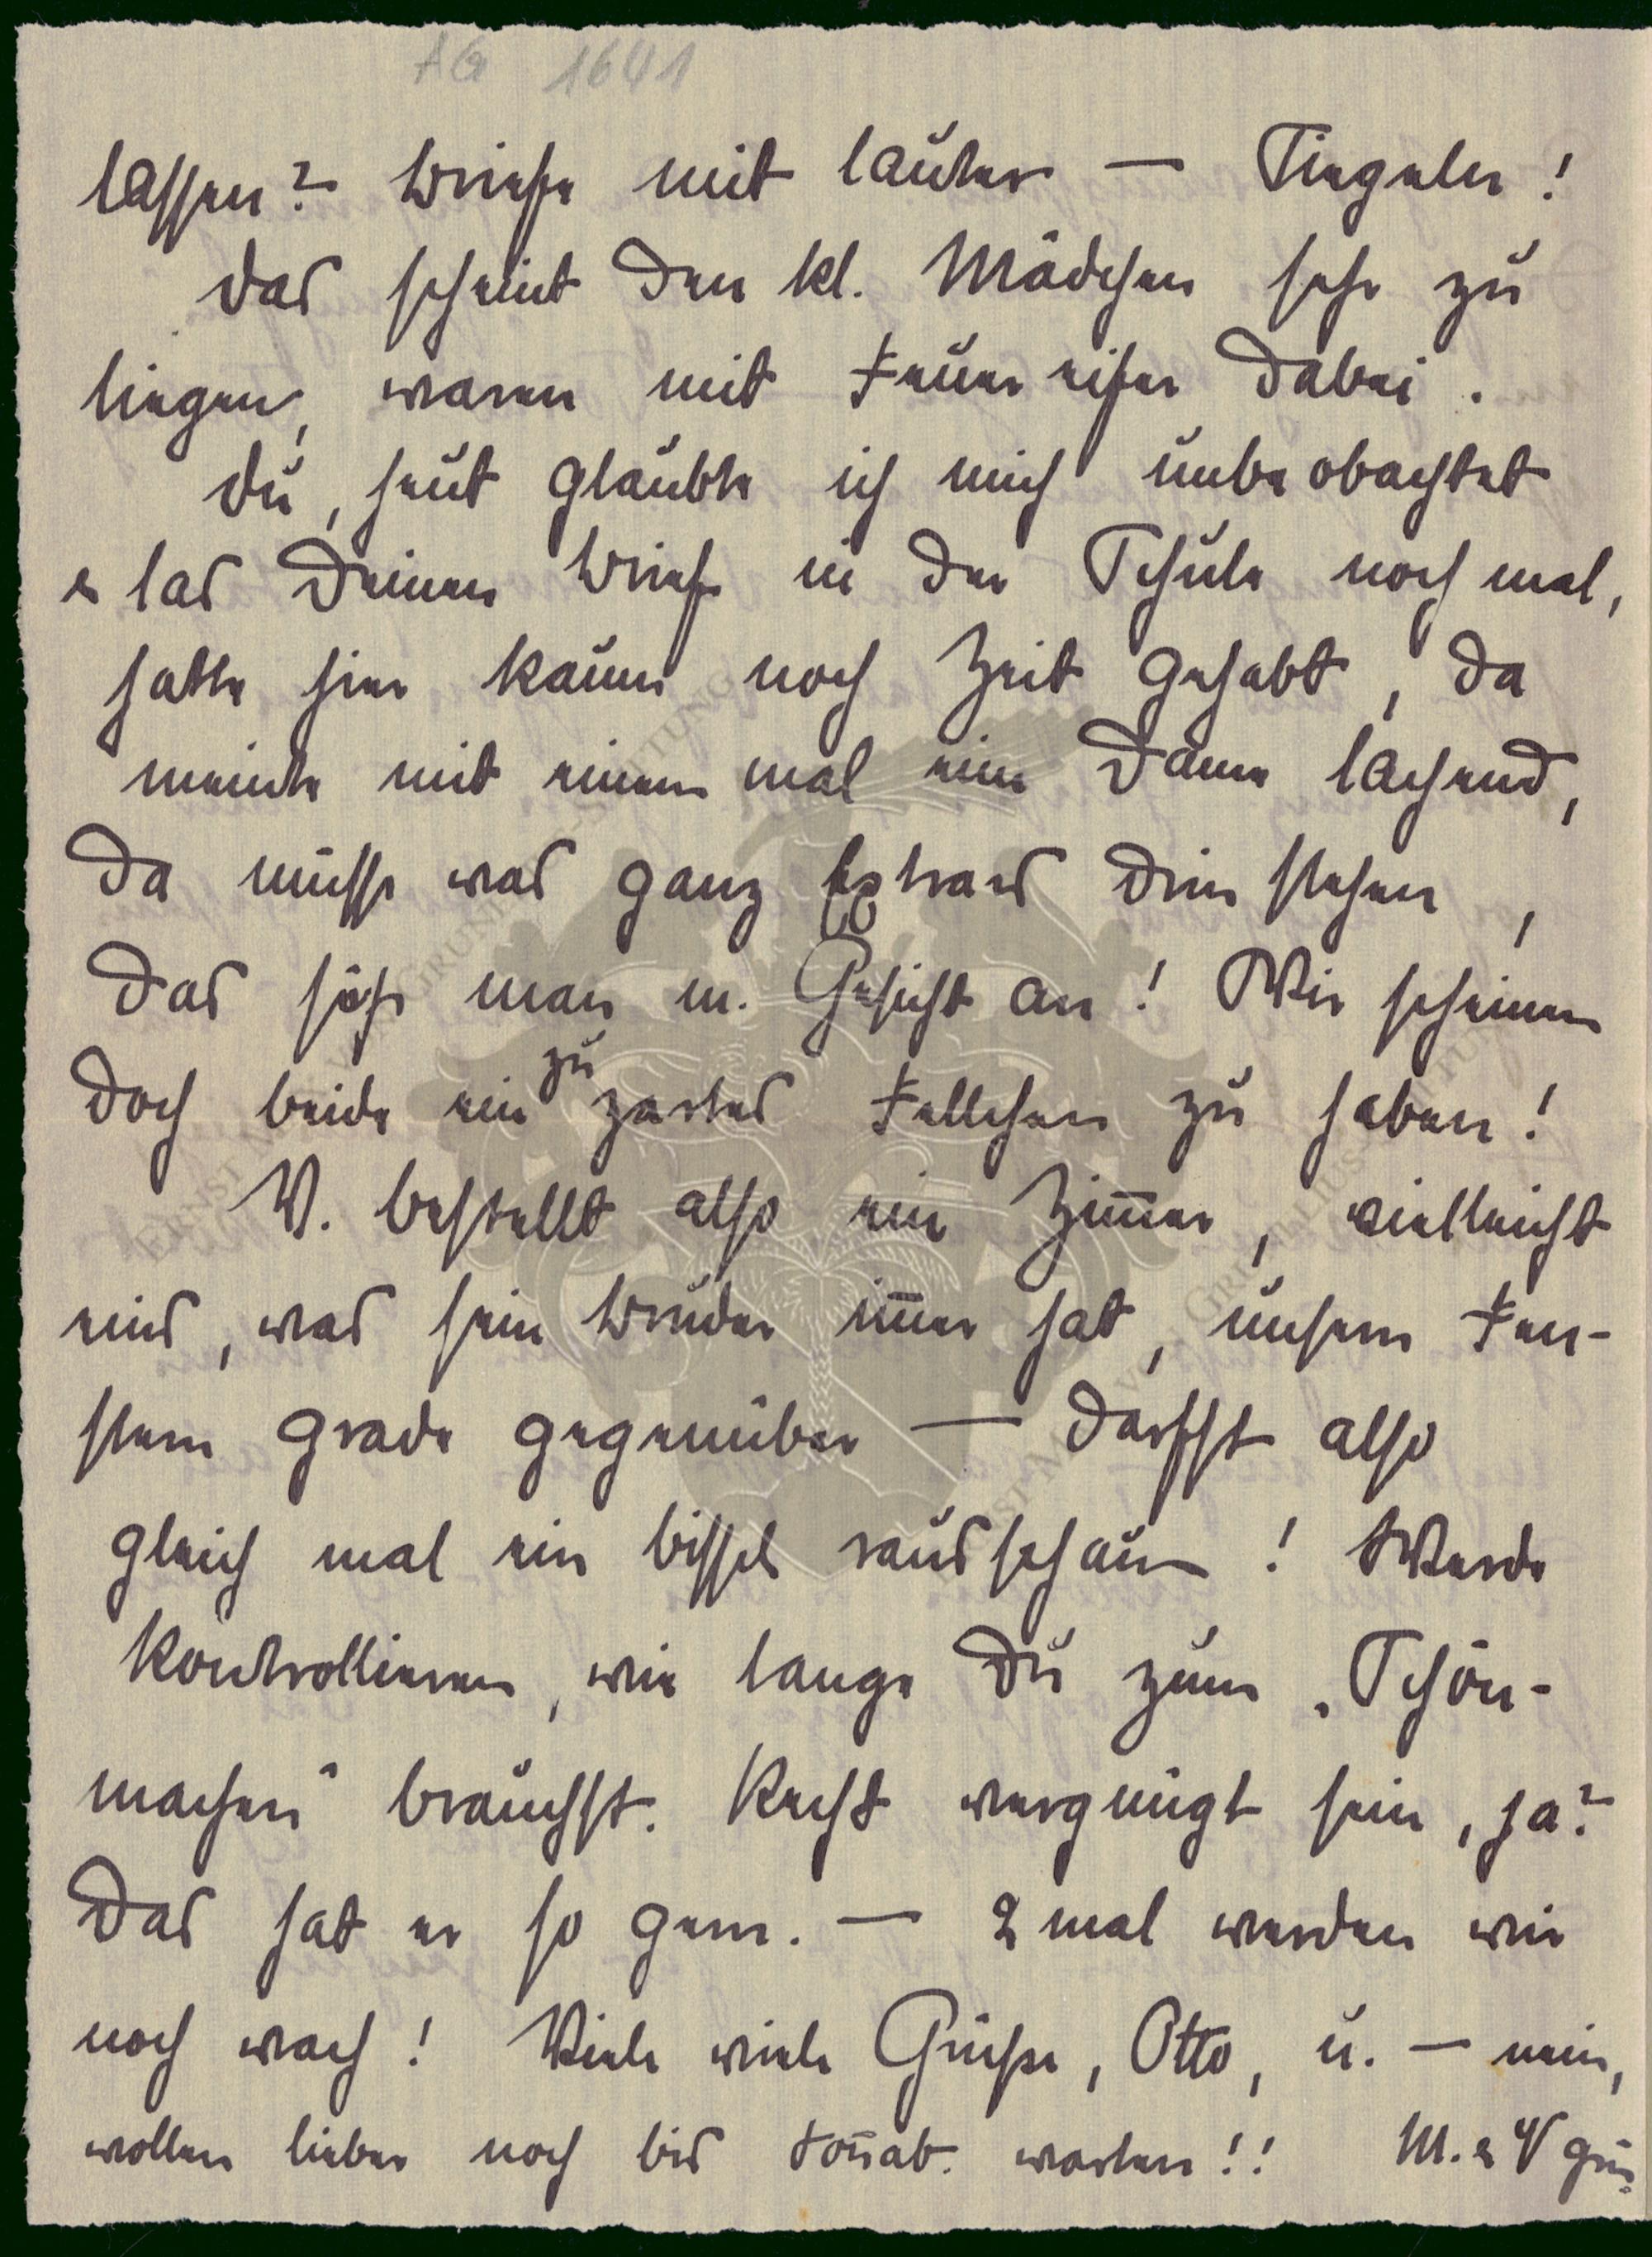 AG 1641
lassen? Briefe mit lauter — Siegeln!
Das scheint den kl. Mädchen sehr zu
liegen, waren mit Feuereifer dabei.
Du, heut glaubte ich mich unbeobachtet
& las Deinen Brief in der Schule noch mal,
hatte hier kaum noch Zeit gehabt, da
meinte mit einem mal eine Dame lachend,
da müsse was ganz Extraes drin stehen,
das sähe man m. Gesicht an! Wir scheinen
doch beide ein zu zartes Fellchen zu haben!
V. bestellt also ein Zim̅er, vielleicht
eins, was sein Bruder im̅er hat, unsern Fen-
stern grade gegenüber — darfst also
gleich mal ein bissel rausschaun! Werde
kontrollieren, wie lange Du zum „Schön-
machen" brauchst. Recht vergnügt sein, ja?
Das hat er so gern. — 2 mal werden wir
noch wach! Viele viele Grüße, Otto, u. — nein,
wollen lieber noch bis Son̅ab. warten!! M. & V grü-